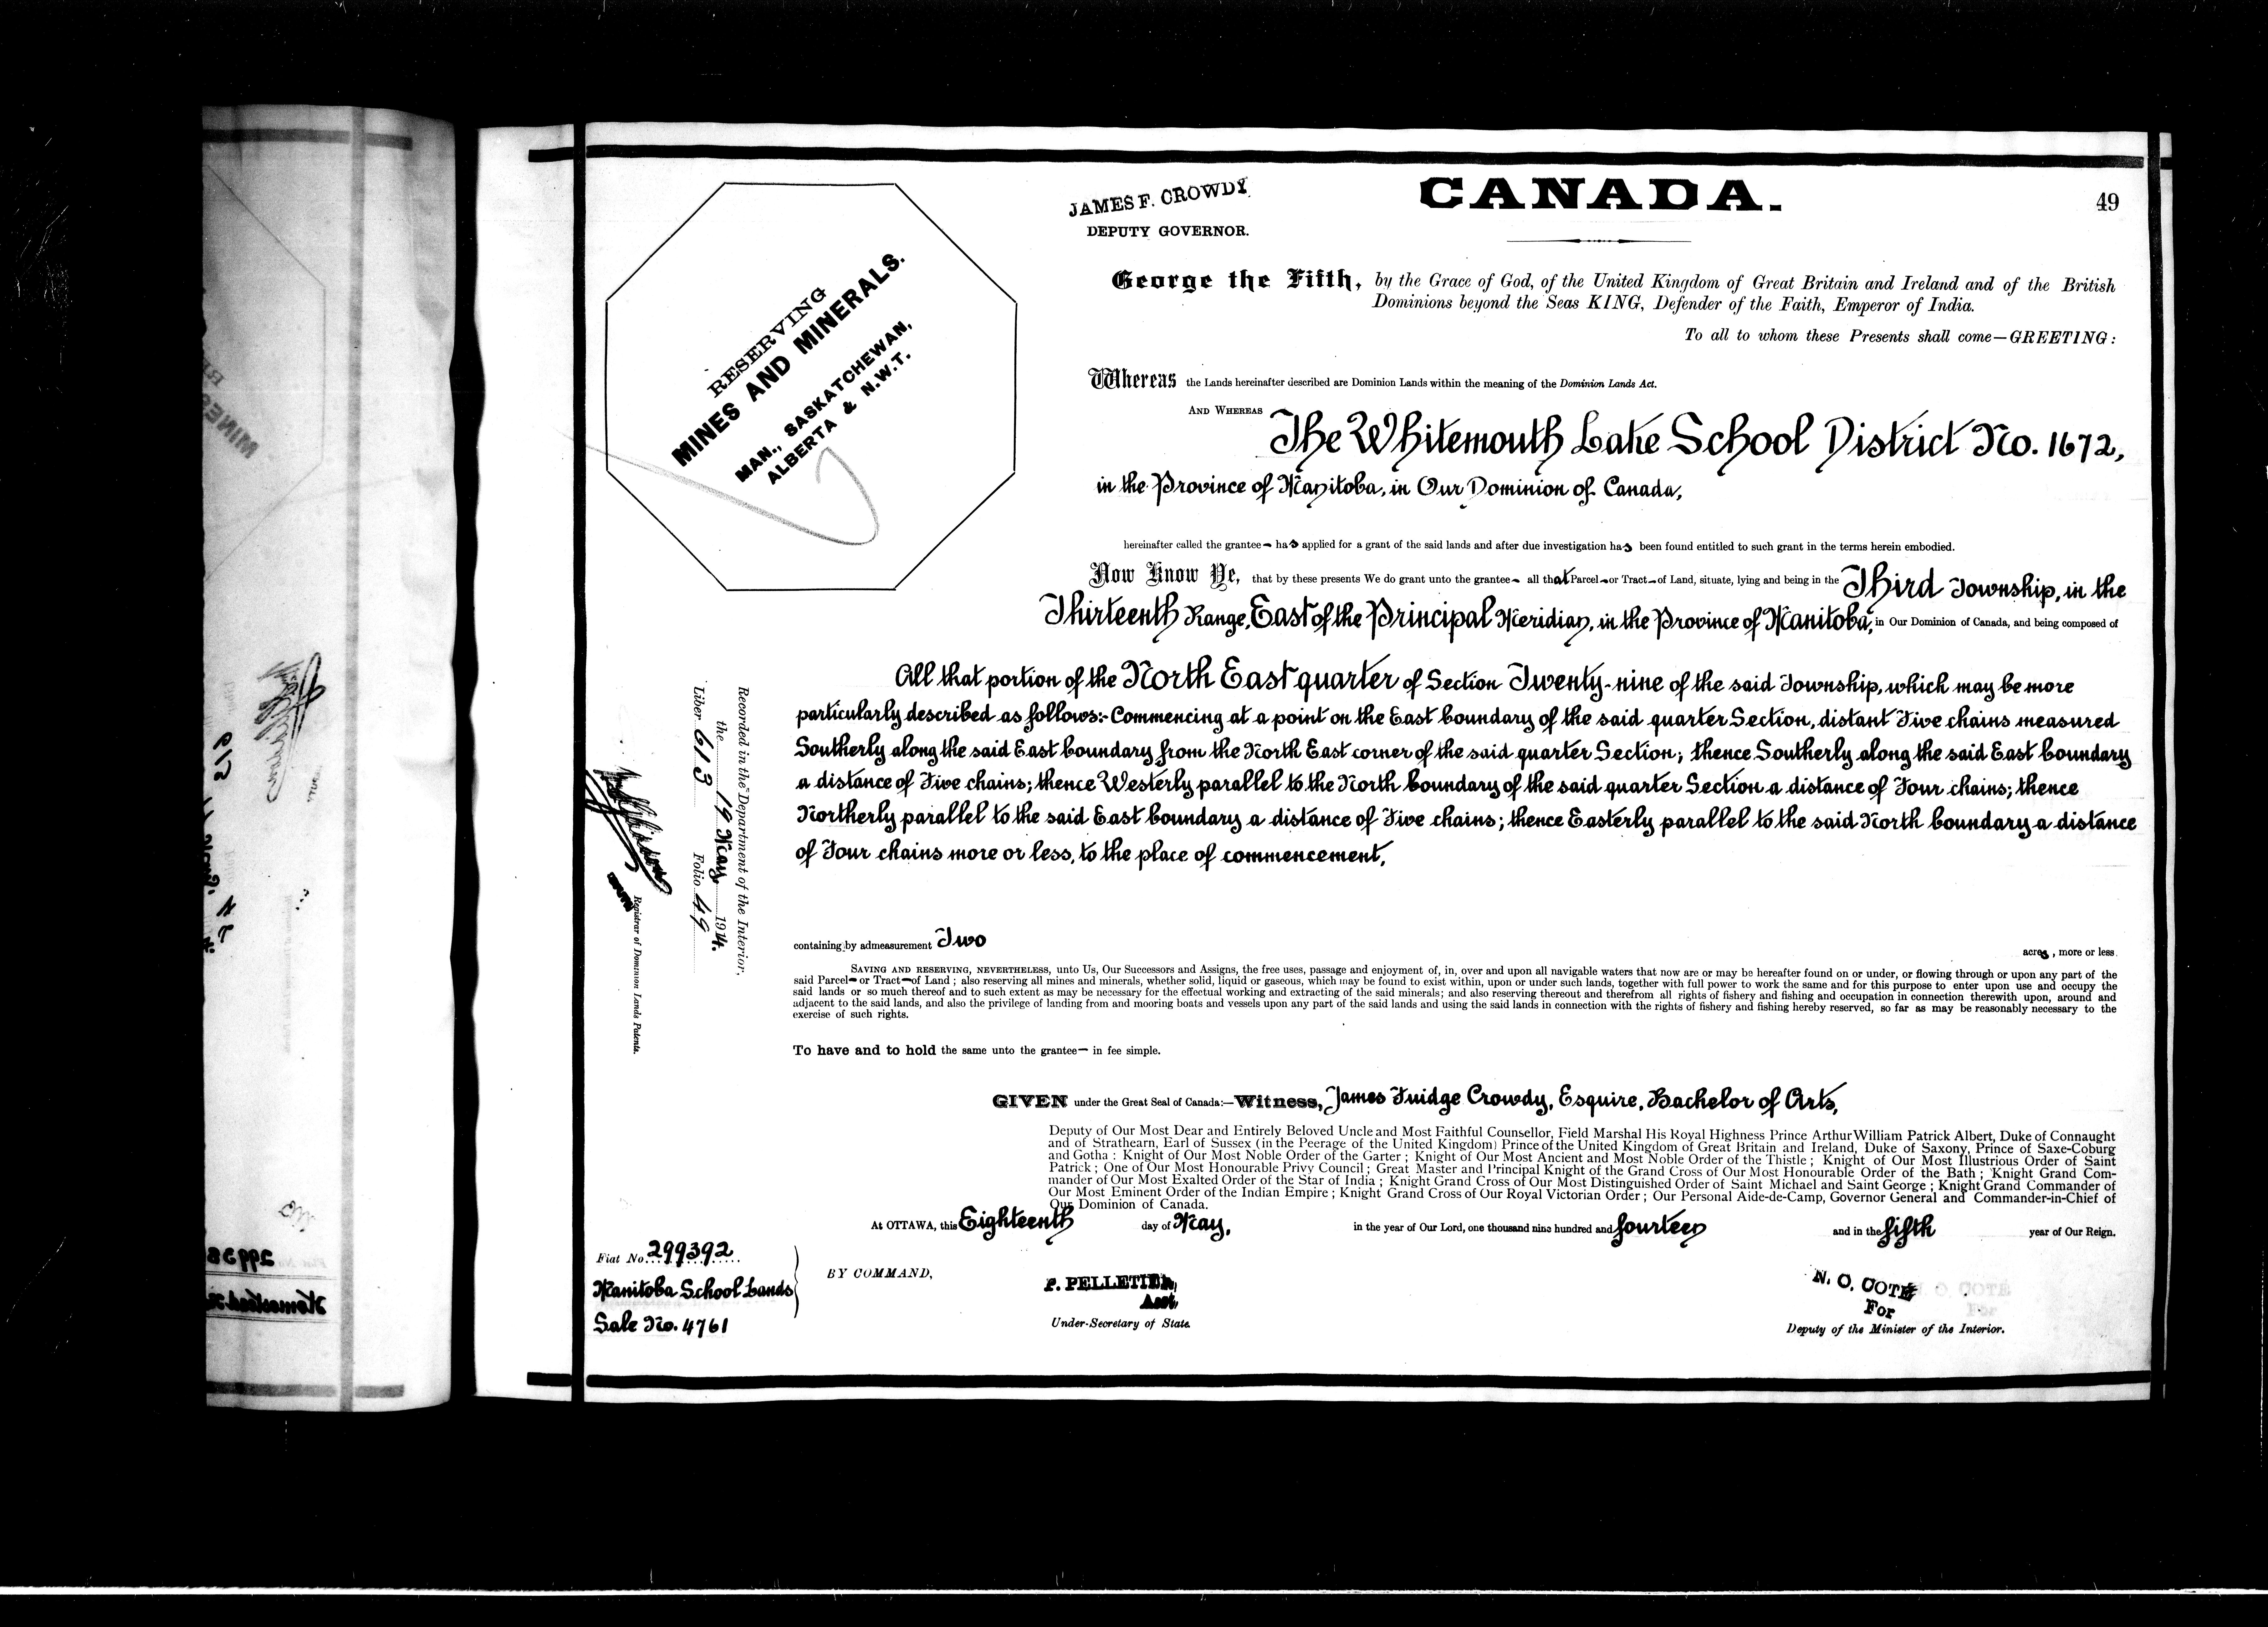 JAMES F. CROWDY.
DEPUTY GOVERNOR.
CANADA.
49
RESERVING
MINES AND MINERALS.
MAN., SASKATCHEWAN,
ALBERTA & N.W.T.
George the Fifth, by the Grace of God, of the United Kingdom of Great Britain and Ireland and of the British
Dominions beyond the Seas KING, Defender of the Faith, Emperor of India.
To all to whom these Presents shall come—GREETING:
Whereas the Lands hereinafter described are Dominion Lands within the meaning of the Dominion Lands Act.
AND WHEREAS The Whitemouth Lake School District No. 1672,
in the Province of Manitoba, in Our Dominion of Canada,
hereinafter called the grantee— has applied for a grant of the said lands and after due investigation has been found entitled to such grant in the terms herein embodied.
Now Know Ye, that by these presents We do grant unto the grantee— all that Parcel—or Tract—of Land, situate, lying and being in the Third Township, in the
Thirteenth Range, East of the Principal Meridian, in the Province of Manitoba, in Our Dominion of Canada, and being composed of
All that portion of the North East quarter of Section Twenty-nine of the said Township, which may be more
particularly described as follows:- Commencing at a point on the East boundary of the said quarter Section, distant Five chains measured
Southerly along the said East boundary from the North East corner of the said quarter Section; thence Southerly along the said East boundary
a distance of Five chains; thence Westerly parallel to the North boundary of the said quarter Section a distance of Four chains; thence
Northerly parallel to the said East boundary a distance of Five chains; thence Easterly parallel to the said North boundary a distance
of Four chains more or less, to the place of commencement,
Recorded in the Department of the Interior,
the 19 May, 1914.
Liber 613 Folio 49
Registrar of Dominion Lands Patents.
containing by admeasurement Two acres, more or less.
SAVING AND RESERVING, NEVERTHELESS, unto Us, Our Successors and Assigns, the free uses, passage and enjoyment of, in, over and upon all navigable waters that now are or may be hereafter found on or under, or flowing through or upon any part of the
said Parcel—or Tract—of Land; also reserving all mines and minerals, whether solid, liquid or gaseous, which may be found to exist within, upon or under such lands, together with full power to work the same and for this purpose to enter upon use and occupy the
said lands or so much thereof and to such extent as may be necessary for the effectual working and extracting of the said minerals; and also reserving thereout and therefrom all rights of fishery and fishing and occupation in connection therewith upon, around and
adjacent to the said lands, and also the privilege of landing from and mooring boats and vessels upon any part of the said lands and using the said lands in connection with the rights of fishery and fishing hereby reserved, so far as may be reasonably necessary to the
exercise of such rights.
To have and to hold the same unto the grantee— in fee simple.
GIVEN under the Great Seal of Canada:—Witness, James Fuidge Crowdy, Esquire, Bachelor of Arts,
Deputy of Our Most Dear and Entirely Beloved Uncle and Most Faithful Counsellor, Field Marshal His Royal Highness Prince Arthur William Patrick Albert, Duke of Connaught
and of Strathearn, Earl of Sussex (in the Peerage of the United Kingdom) Prince of the United Kingdom of Great Britain and Ireland, Duke of Saxony, Prince of Saxe-Coburg
and Gotha: Knight of Our Most Noble Order of the Garter; Knight of Our Most Ancient and Most Noble Order of the Thistle; Knight of Our Most Illustrious Order of Saint
Patrick; One of Our Most Honourable Privy Council; Great Master and Principal Knight of the Grand Cross of Our Most Honourable Order of the Bath; Knight Grand Com-
mander of Our Most Exalted Order of the Star of India; Knight Grand Cross of Our Most Distinguished Order of Saint Michael and Saint George; Knight Grand Commander of
Our Most Eminent Order of the Indian Empire; Knight Grand Cross of Our Royal Victorian Order; Our Personal Aide-de-Camp, Governor General and Commander-in-Chief of
Our Dominion of Canada.
At OTTAWA, this Eighteenth day of May, in the year of Our Lord, one thousand nine hundred and fourteen and in the fifth year of Our Reign.
Fiat No. 299392
Manitoba School Lands
Sale No. 4761
BY COMMAND,
P. PELLETIER,
Asst.
Under-Secretary of State.
N. O. COTÉ
For
Deputy of the Minister of the Interior.